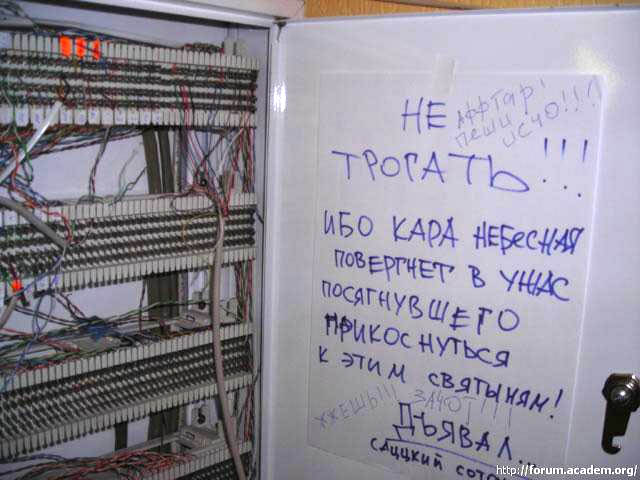 НЕ
аффтар!
пеши
исчо!!!
ТРОГАТЬ!!!
ИБО КАРА НЕБЕСНАЯ
ПОВЕРГНЕТ В УЖАС
ПОСЯГНУВШЕГО
ПРИКОСНУТЬСЯ
К ЭТИМ СВЯТЫНЯМ!
ЖЖЕШЬ!!! ЗАЧОТ!!!
ДЪЯВАЛ...
САЦЦКИЙ
http://forum.academ.org/